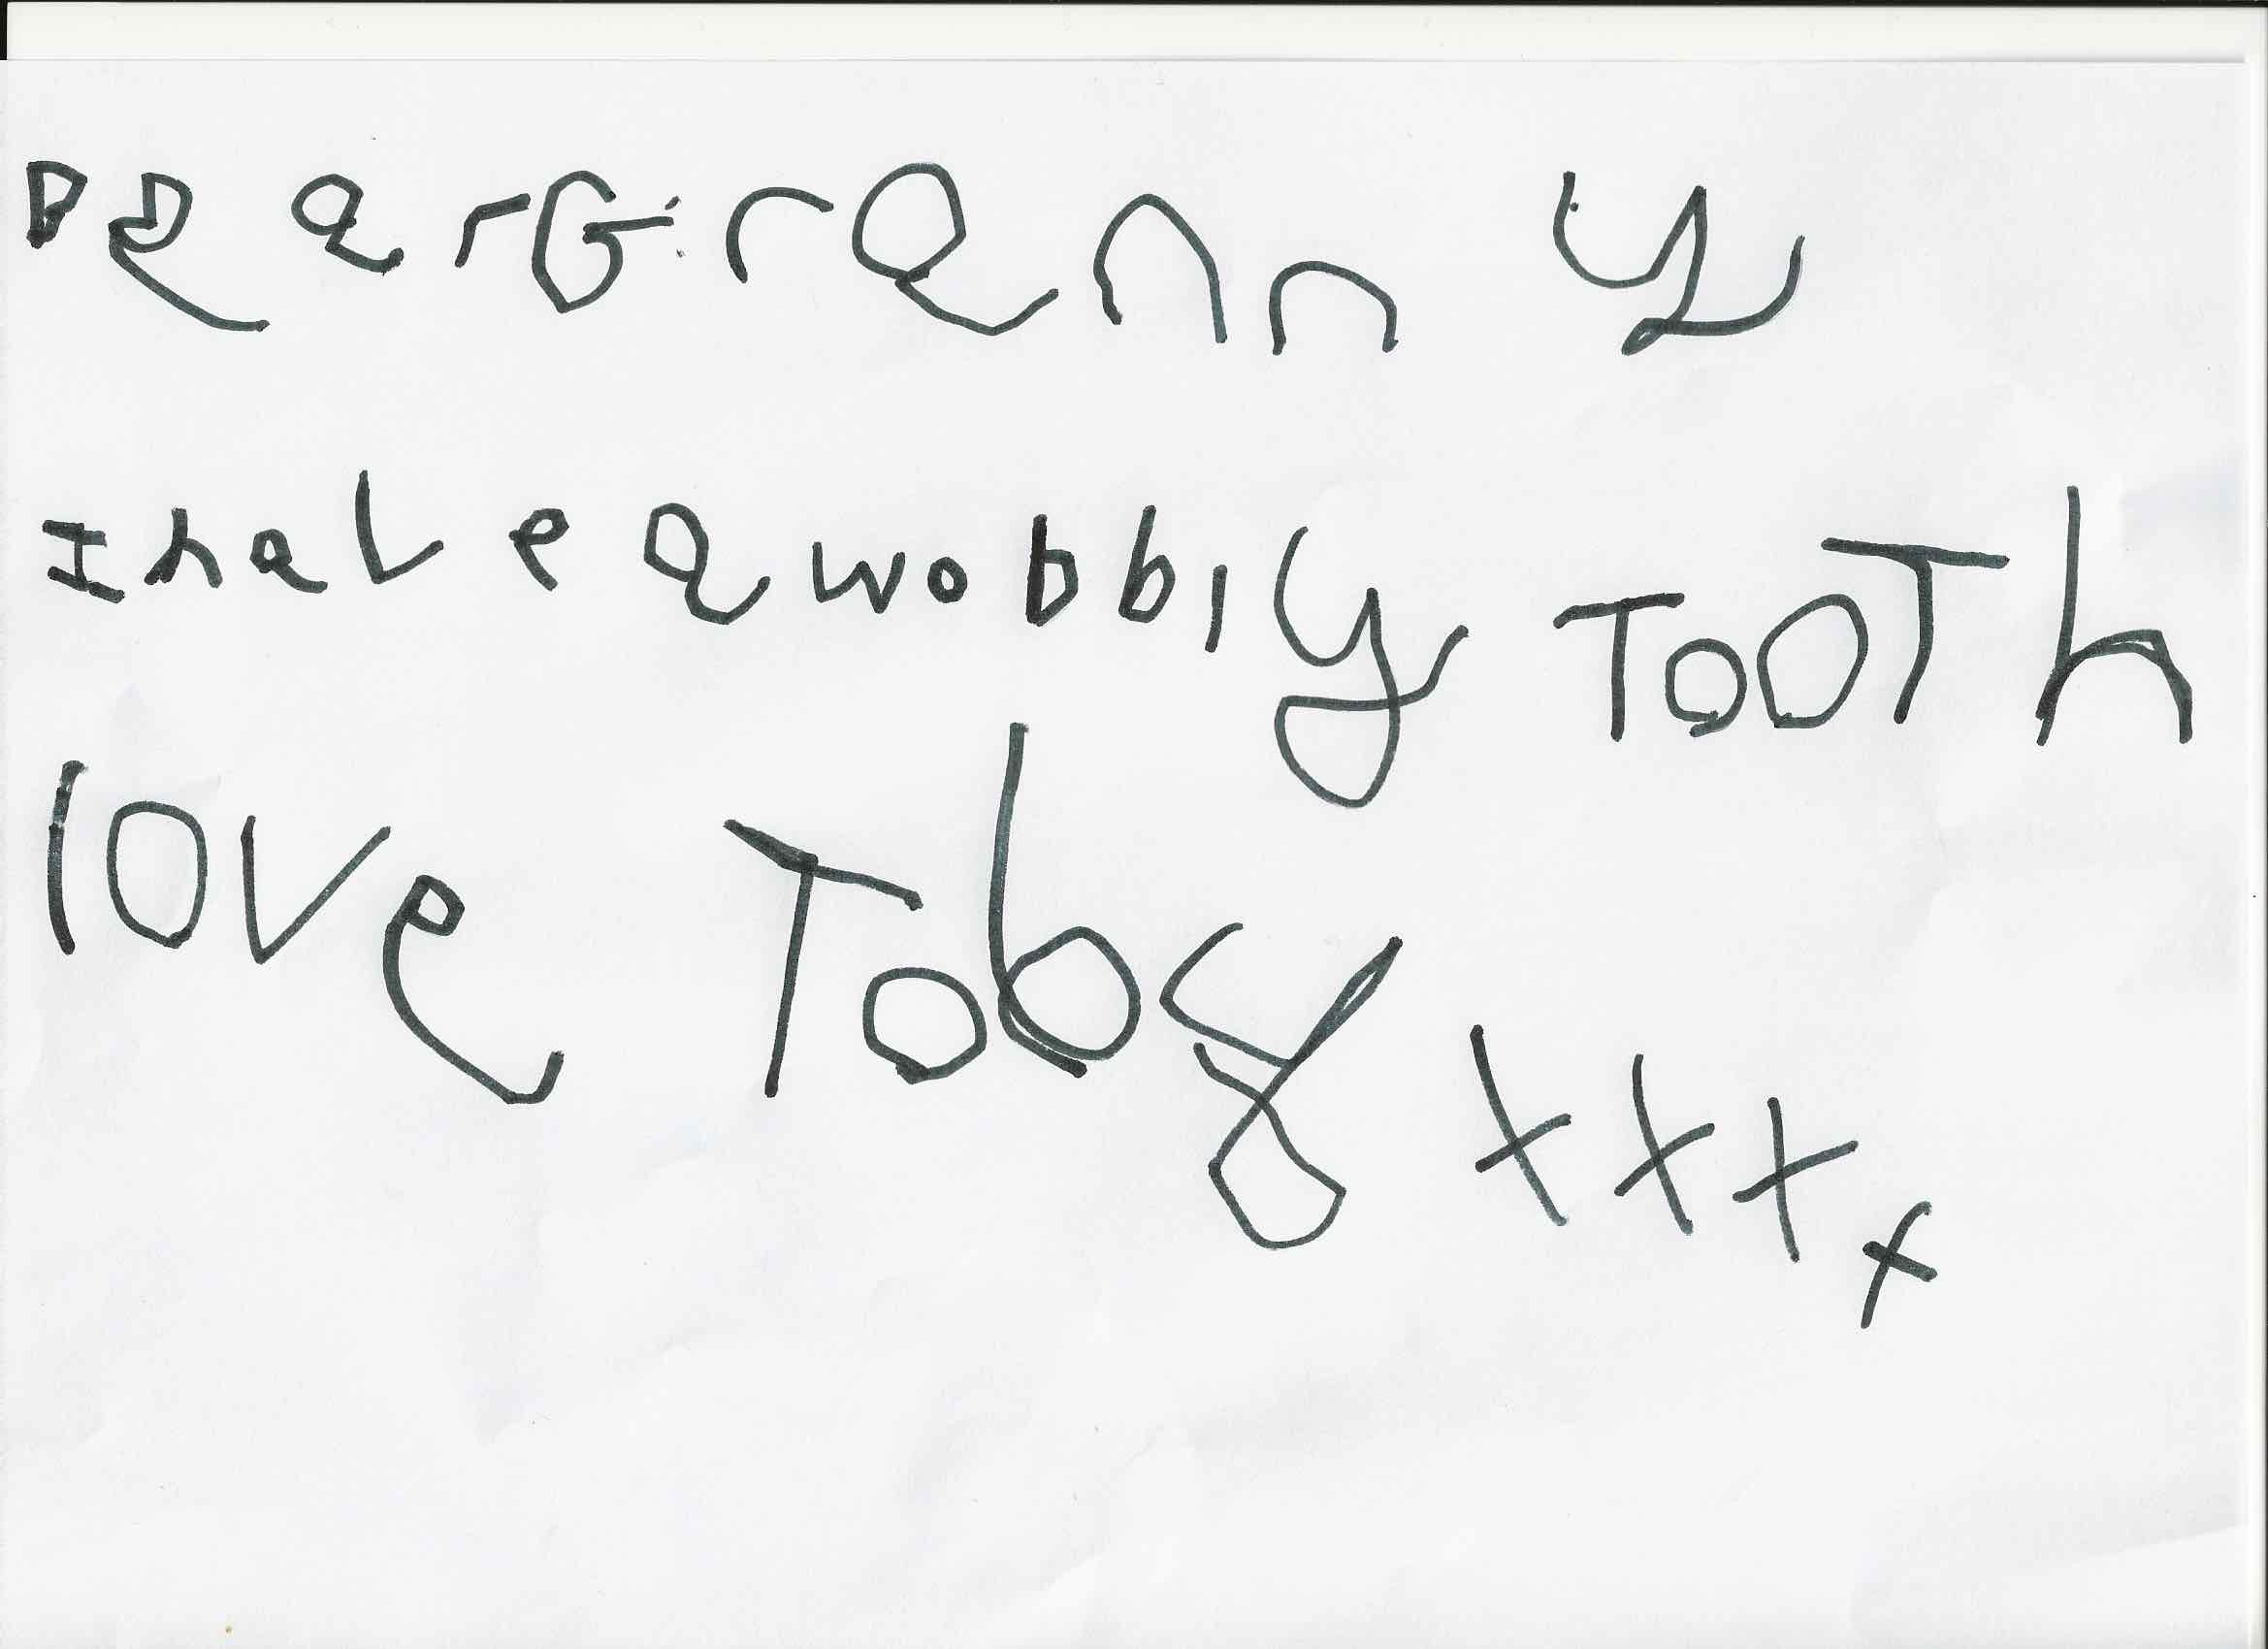 Dear Granny
I have a wobbly TooTh
love Toby xxxx